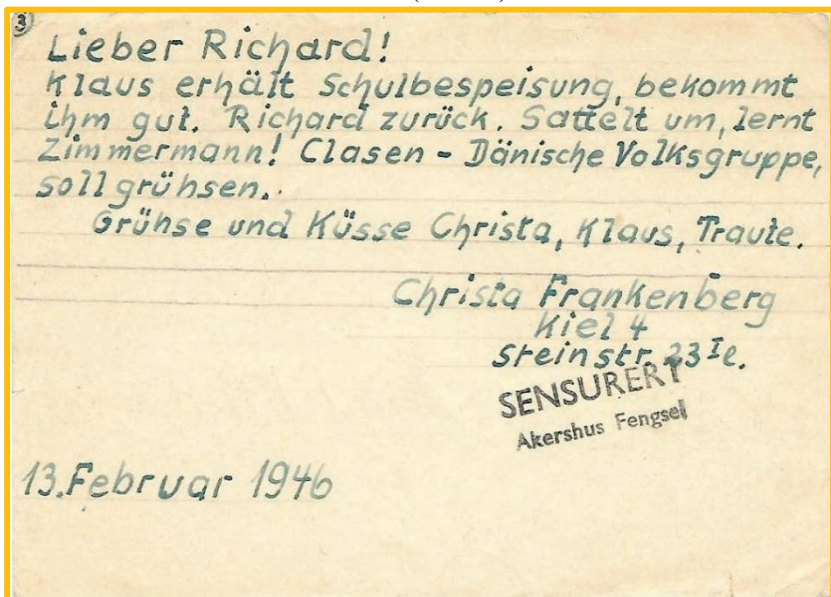 3
Lieber Richard!
Klaus erhält Schulbespeisung, bekommt
ihm gut. Richard zurück. Sattelt um, lernt
Zimmermann! Clasen - Dänische Volksgruppe,
soll grühsen.
Grühse und Küsse Christa, Klaus, Traute.
Christa Frankenberg
Kiel 4
Steinstr. 23 I e.
SENSURERT
Akershus Fengsel
13. Februar 1946